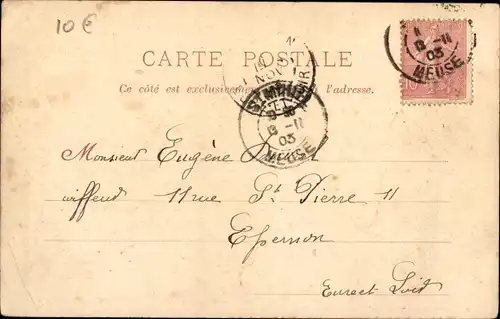 10 €
CARTE POSTALE
Ce côté est exclusivement l'adresse.
NOV
11
03
MEUSE
ST MIHIEL
11
03
MEUSE
10
Monsieur Eugène
coiffeur 11 rue St Pierre 11
Epernon
Eure et Loir